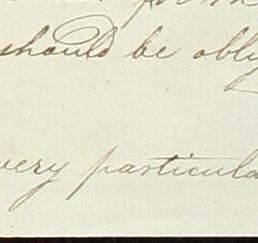 should be obly
very particula